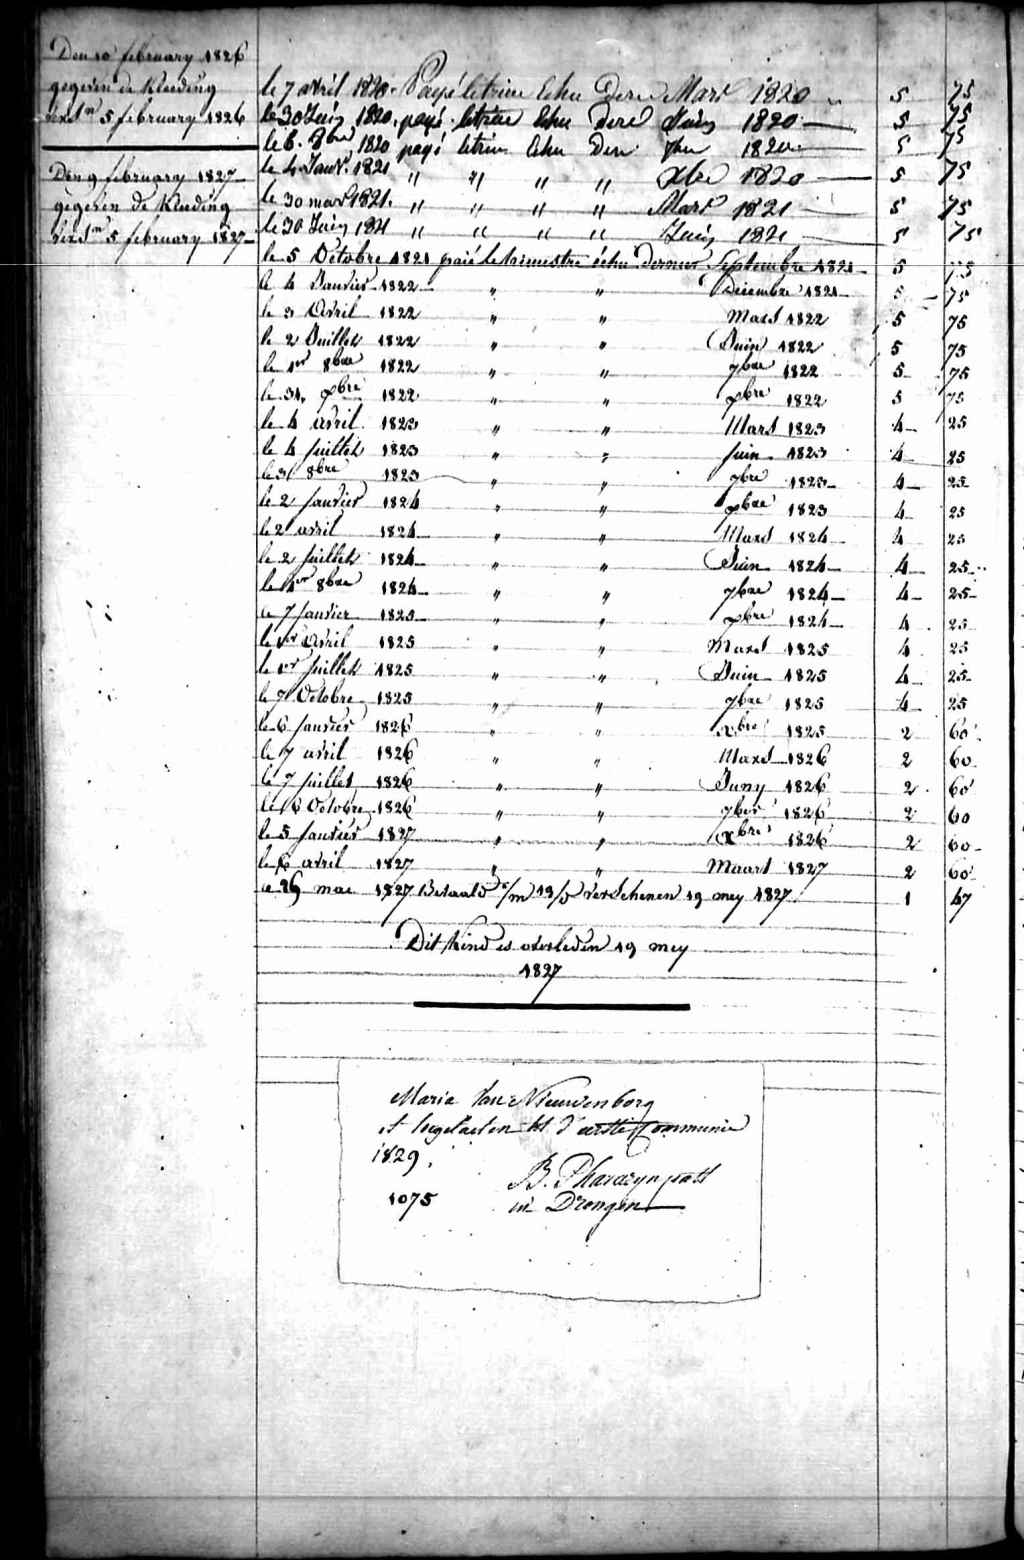 Den 10 february 1826
gegeven de Kleeding
5 february 1826
Den 9 february 1827
gegeven de Kleeding
5 february 1827
le 7 avril 1820. Payé letrim Echu Dere Mars 1820 5 75
le 30 Juin 1820. payé letrim Echu dere Juin 1820 5 75
le 6. 8bre 1820 payé letrim Echu Der 1820 5 75
le 4 Janvr. 1821 " " " " Xbre 1820 5 75
le 30 mars 1821. " " " " Mars 1821 5 75
le 30 Juin 1821 " " " " Juin 1821 5 75
le 5 Octobre 1821 paié le trimestre échu dernier Septembre 1821 5 75
le 4 Janvier 1822 " " Décembre 1821 5 75
le 3 Avril 1822 " " Mars 1822 5 75
le 2 Juillet 1822 " " Juin 1822 5 75
le 1er 8bre 1822 " " 7bre 1822 5 75
le 31, xbre 1822 " " xbre 1822 5 75
le 4 avril 1823 " " Mars 1823 4 25
le 4 juillet 1823 " " juin 1823 4 25
le 3 8bre 1823 " " 7bre 1823 4 25
le 2 janvier 1824 " " xbre 1823 4 25
le 2 avril 1824 " " Mars 1824 4 25
le 2 juillet 1824 " " Juin 1824 4 25
le 1er 8bre 1824 " " 7bre 1824 4 25
le 7 Janvier 1825 " " xbre 1824 4 25
le 1er Avril 1825 " " Mars 1825 4 25
le 1er Juillet 1825 " " Juin 1825 4 25
le 7 Octobre 1825 " " 7bre 1825 4 25
le 6 janvier 1826 " " xbre 1825 2 60
le 7 avril 1826 " " Mars 1826 2 60
le 7 juillet 1826 " " Juny 1826 2 60
le 6 Octobre 1826 " " 7ber 1826 2 60
le 5 janvier 1827 " " xbre 1826 2 60
le 6 avril 1827 " " Maart 1827 2 60
le 29 mae 1827 Betaald verschenen 19 mey 1827 1 47
Dit kind is overleden 19 mey
1827
Marie Van Nieuwenborg
d'eerste Communie
1829.
B.
1075 in Drongen